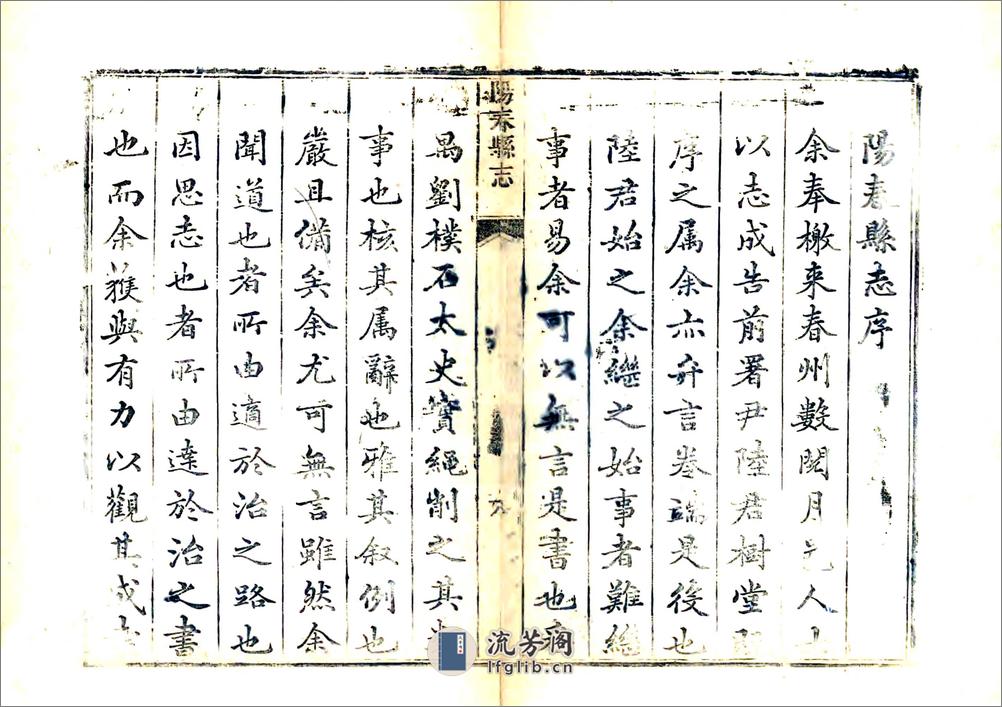 陽春縣志序
余奉檄来春州數閱月人士
以志成告前署尹陸君樹堂
序之属余亦弁言卷端是役也
陸君始之余繼之始事者難繼
事者易余可以無言是書也
陽春縣志
禺劉樸石太史實繩削之其
事也核其属辭也雅其叙例也
嚴且備矣余尤可無言雖然余
聞道也者所由適於治之路也
因思志也者所由達於治之書
也而余獲與有力以觀其成
流芳阁
lfglib.cn